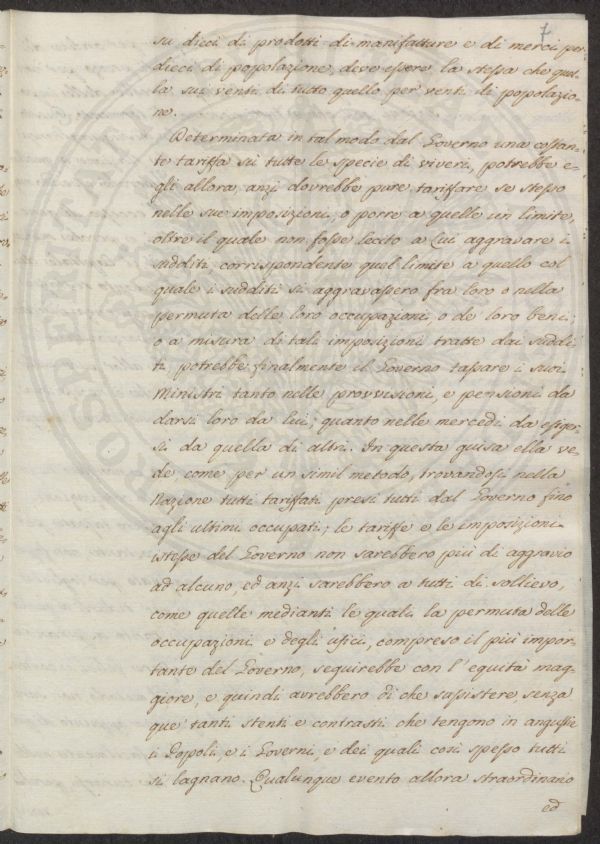 7
su dieci di prodotti di manifatture e di merci per
dieci di popolazione, deve essere la stessa che quel-
la sui venti di tutto quello per venti di popolazio-
ne.
Determinata in tal modo dal Governo una costan-
te tariffa su tutte le specie di viveri, potrebbe e-
gli allora, anzi dovrebbe pure, tariffare se stesso
nelle sue imposizioni, o porre a quelle un limite,
oltre il quale non fosse lecito a Lui aggravare i
sudditi, corrispondente quel limite a quello col
quale i sudditi si aggravassero fra loro o nella
permuta delle loro occupazioni, o de' loro beni;
o a misura di tali imposizioni tratte dai suddi-
ti, potrebbe finalmente il Governo tassare i suoi
Ministri tanto nelle provvisioni, e pensioni da
darsi loro da lui, quanto nelle mercedi da esiger-
si da quella di altri. In questa guisa ella ve-
de come per un simil metodo, trovandosi nella
Nazione tutti tariffati presi tutti dal Governo fino
agli ultimi occupati; le tariffe e le imposizioni
istesse del Governo non sarebbero più di aggravio
ad alcuno, ed anzi sarebbero a tutti di sollievo,
come quelle medianti le quali la permuta delle
occupazioni e degli ufici, compreso il più impor-
tante del Governo, seguirebbe con l'equità mag-
giore, e quindi avrebbero di che sussistere, senza
que' tanti stenti e contrasti che tengono in angustie
i Popoli, e i Governi, e dei quali così spesso tutti
si lagnano. Qualunque evento allora straordinario
ed